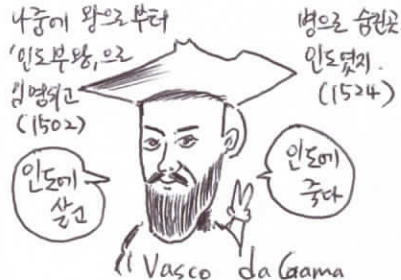 나중에 왕으로부터
'인도 부왕'으로
임명되고
(1502)
병으로 숨진곳
인도였지.
(1524)
인도에
살고
인도에
죽다
Vasco da Gama